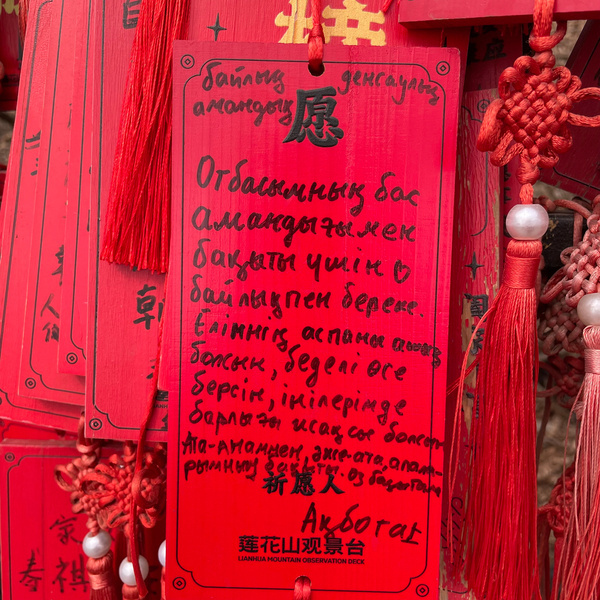 байлық денсаулық
амандық
愿
Отбасымның бас
амандығы мен
бақыты үшін ♡
байлық пен береке.
Еліміңің аспаны ашық
болсын, беделі өсе
берсін, інілерімде
барлығы жақсы болсын
Ата-анамның, әже-ата, апала-
рымның бақыты. Өз бақытым
祈愿人
Ақбота
莲花山观景台
LIANHUA MOUNTAIN OBSERVATION DECK
朝
家
寿 祺